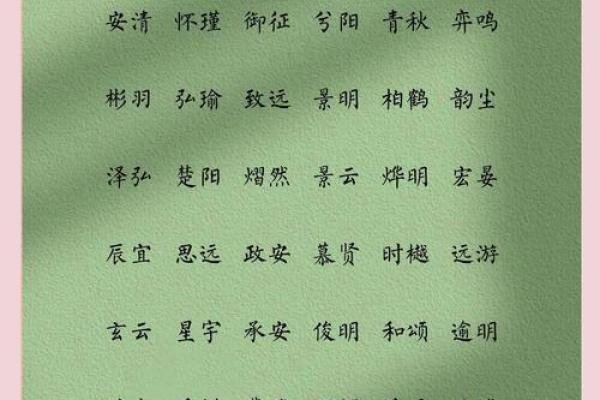 安清 怀瑾 御征 兮阳 青秋 弈鸣
彬羽 弘瑜 致远 景明 柏鹤 韵尘
泽弘 楚阳 熠然 景云 烨明 宏晏
辰宜 思远 政安 慕贤 时樾 远游
玄云 星宇 承安 俊明 和颂 逾明